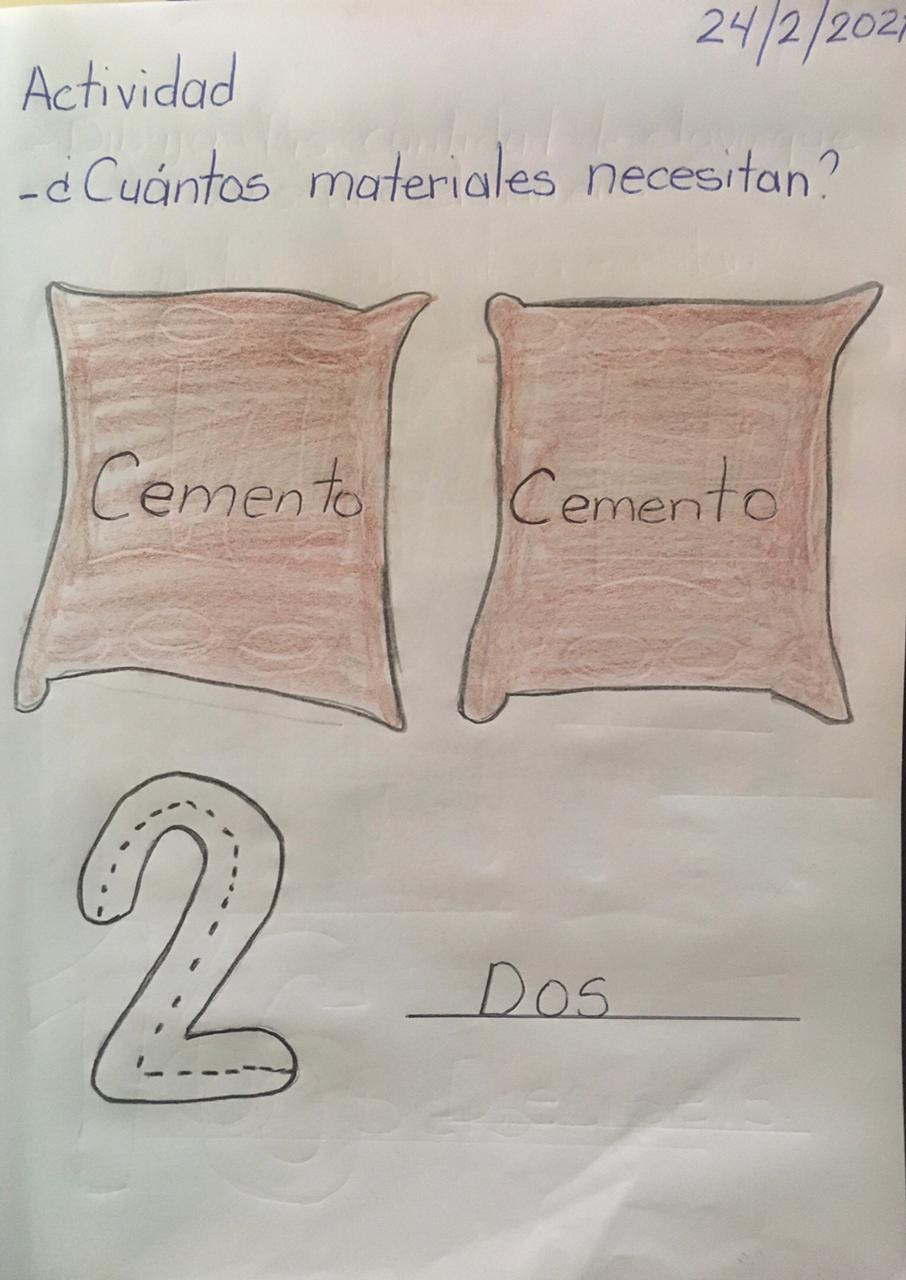 24/2/2021
Actividad
-¿Cuántos materiales necesitan?
Cemento Cemento
2
Dos